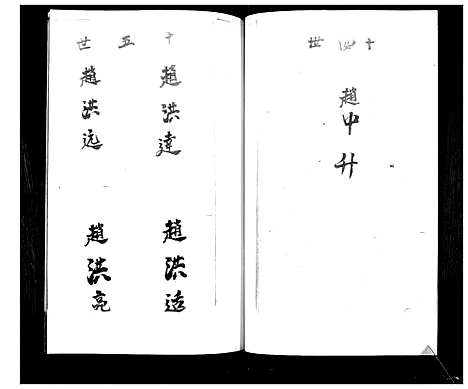 十四世
趙中升
十五世
趙洪達
趙洪透
趙洪远
趙洪亮